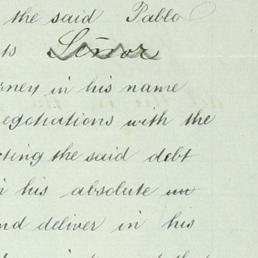 the said Pablo
ts Señor
rney in his name
egotiations with the
cting the said debt
n his absolute un
nd deliver in his